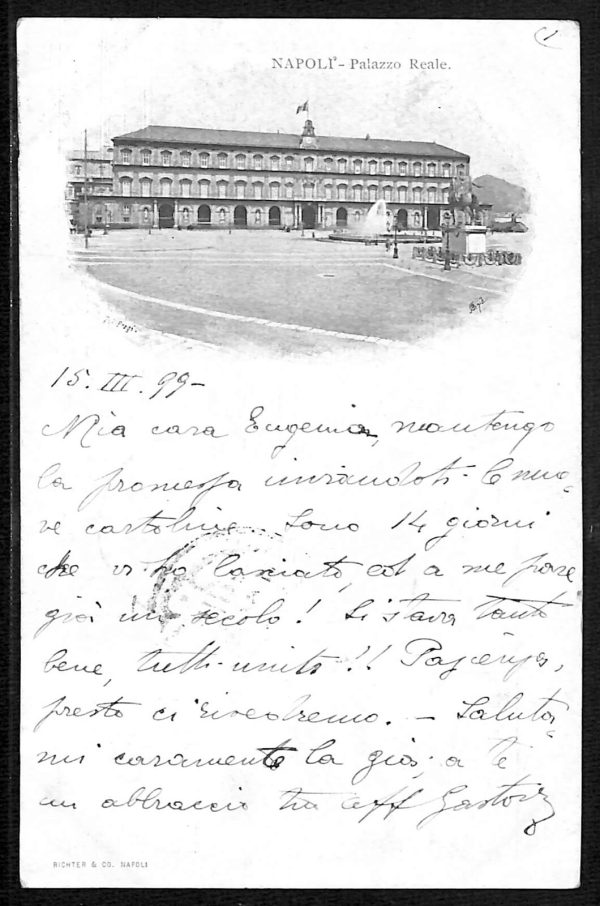 NAPOLI - Palazzo Reale.
15. III. 99-
Mia cara Eugenia, mantengo
la promessa inviandoti le nuo=
ve cartoline. Sono 14 giorni
che vi ho lasciato, ed a me pare
già un secolo! Si stava tanto
bene, tutti uniti!! Pazienza,
presto ci rivedremo. - Saluta=
mi caramente la a te
un abbraccio tuo aff Gaston
RICHTER & CO. NAPOLI